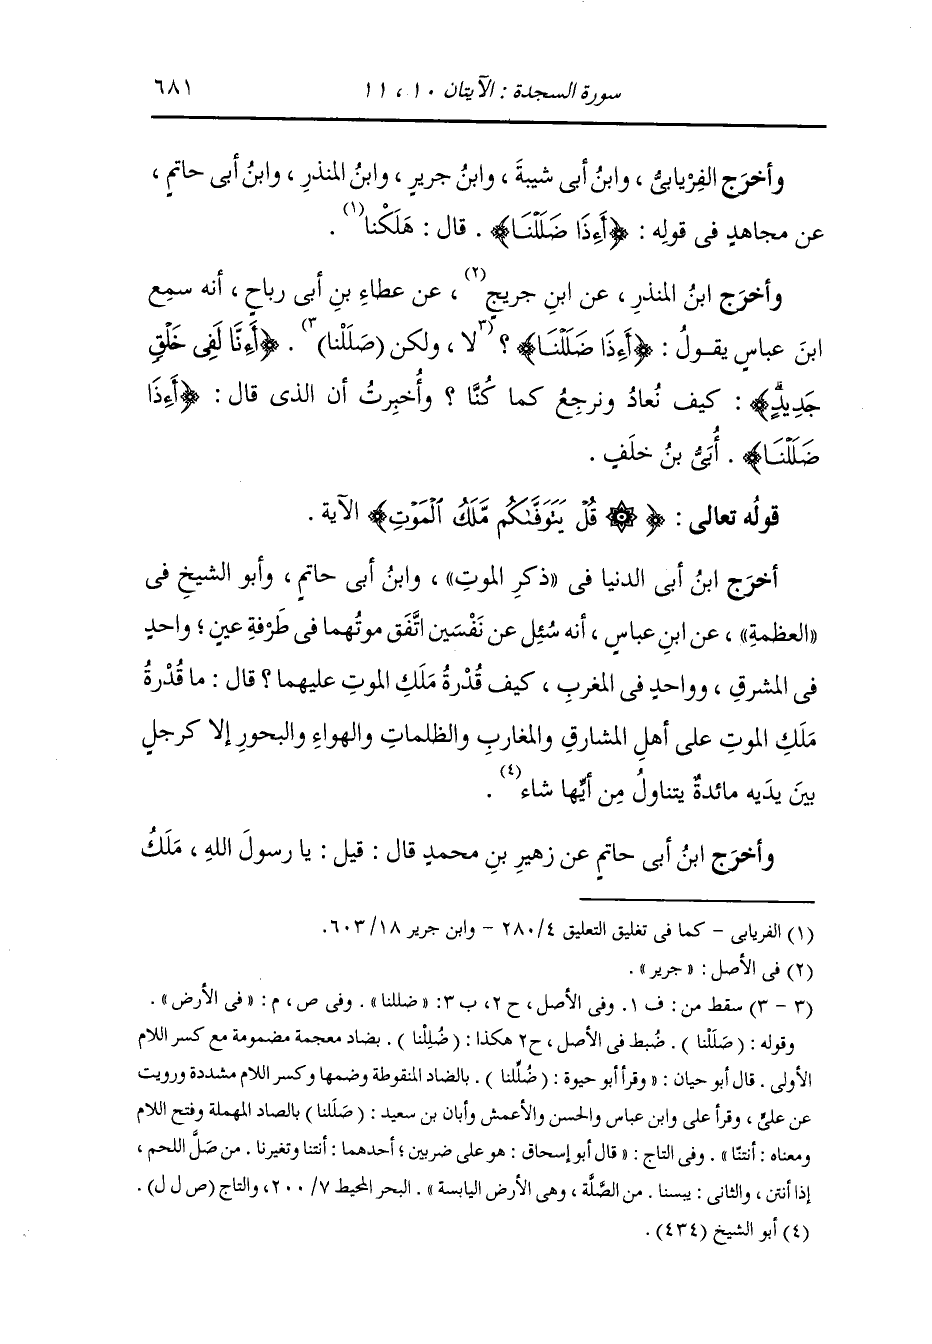 سورة السجدة : الآيتان ١٠ ، ١١
٦٨١
وأخرَج الفِرْيابىُّ ، وابنُ أبى شيبةَ ، وابنُ جريرٍ ، وابنُ المنذرِ ، وابنُ أبى حاتمٍ ،
عن مجاهدٍ فى قولِه : ﴿أَءِذَا ضَلَلْنَا﴾ . قال : هَلَكْنا(١) .
وأخرَج ابنُ المنذرِ ، عن ابنِ جريجٍ(٢) ، عن عطاءِ بنِ أبى رباحٍ ، أنه سمِع
ابنَ عباسٍ يقولُ : ﴿أَءِذَا ضَلَلْنَا﴾ ؟ (٣لا ، ولكن (صَلَلْنا)٣) . ﴿أَءِنَّا لَفِى خَلْقٍ
جَدِيدٍ﴾ : كيف نُعادُ ونرجِعُ كما كُنَّا ؟ وأُخبِرتُ أن الذى قال : ﴿أَءِذَا
ضَلَلْنَا﴾ . أُبَىُّ بنُ خلَفٍ .
قولُه تعالى : ﴿ ۞ قُلْ يَتَوَفَّىٰكُم مَّلَكُ ٱلْمَوْتِ﴾ الآية .
أخرَج ابنُ أبى الدنيا فى «ذكرِ الموتِ» ، وابنُ أبى حاتمٍ ، وأبو الشيخِ فى
«العظمةِ» ، عن ابنِ عباسٍ ، أنه سُئِل عن نَفْسَين اتَّفَق موتُهما فى طَرْفةِ عينٍ ؛ واحدٍ
فى المشرقِ ، وواحدٍ فى المغربِ ، كيف قُدْرةُ مَلَكِ الموتِ عليهما ؟ قال : ما قُدْرةُ
مَلَكِ الموتِ على أهلِ المشارقِ والمغاربِ والظلماتِ والهواءِ والبحورِ إلا كرجلٍ
بينَ يدَيه مائدةٌ يتناولُ مِن أيِّها شاء(٤) .
وأخرَج ابنُ أبى حاتمٍ عن زهيرِ بنِ محمدٍ قال : قيل : يا رسولَ اللهِ ، مَلَكُ
(١) الفريابى - كما فى تغليق التعليق ٢٨٠/٤ - وابن جرير ٦٠٣/١٨.
(٢) فى الأصل : « جرير » .
(٣ - ٣) سقط من : ف ١. وفى الأصل ، ح ٢، ب ٣: « ضللنا » . وفى ص ، م : « فى الأرض » .
وقوله : ( صَلَلْنا ) . ضُبط فى الأصل ، ح٢ هكذا : ( ضُلِلْنا ) . بضاد معجمة مضمومة مع كسر اللام
الأولى . قال أبو حيان : « وقرأ أبو حيوة : ( ضُلِّلنا ) . بالضاد المنقوطة وضمها وكسر اللام مشددة ورويت
عن علىٍّ ، وقرأ على وابن عباس والحسن والأعمش وأبان بن سعيد : ( صَلَلنا ) بالصاد المهملة وفتح اللام
ومعناه : أنتنّا » . وفى التاج : « قال أبو إسحاق : هو على ضربين ؛ أحدهما : أنتنا وتغيرنا . من صَلَّ اللحم ،
إذا أنتن ، والثانى : يبسنا . من الصَّلَّة ، وهى الأرض اليابسة » . البحر المحيط ٢٠٠/٧، والتاج (ص ل ل) .
(٤) أبو الشيخ (٤٣٤) .